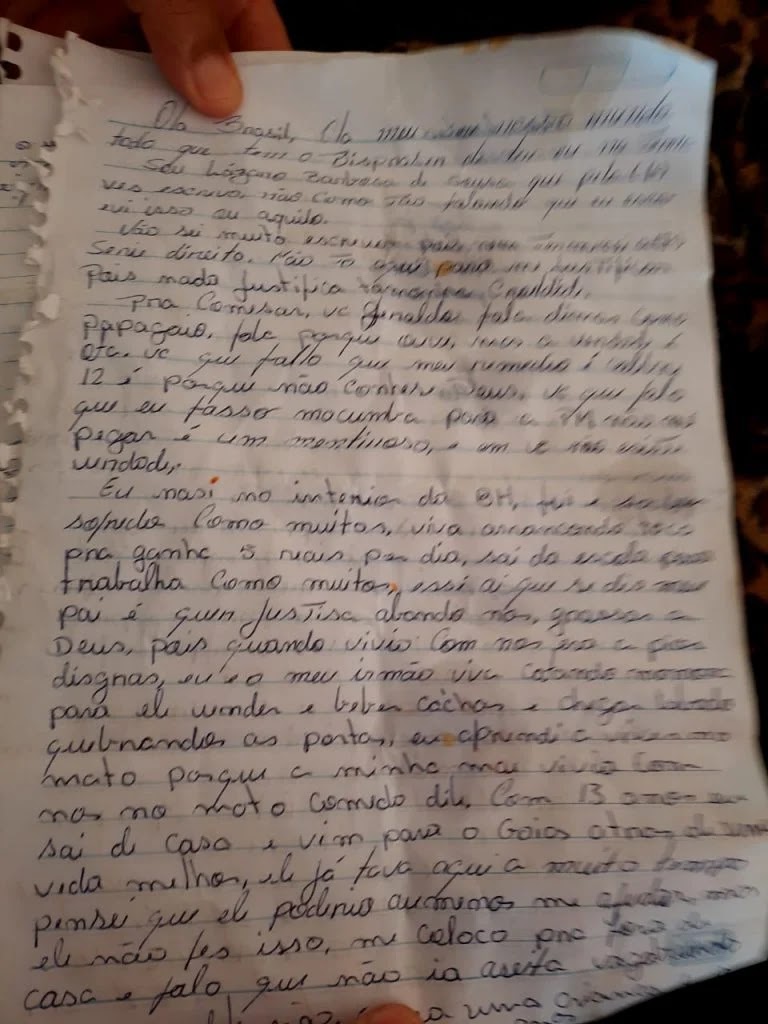 Ola Brasil, Ola
todo que tem o
Seu Lázaro Barbosa de Sousa que pela
ves escrevo, não como são falando que eu
evi isso ou aquilo.
Não sei muito escrever pois
Serie direito. não to aqui para me justifica
pois nada justifica
pra Comesar, vc Genaldo fala
papagaio, fala porque ouve, mas a verdade é
Ota. vc que fallo que meu remedio é calibre
12 é porque não conhese Deus. vc que falo
que eu fasso macumba para a PM não me
pegar é um mentiroso, e
verdade,
Eu nasi no interior da BH, fui e
sofrido Como muitos, vivia arrancando toco
pra ganha 5 reais por dia, sai da escola para
trabalha Como muitos, essi ai que se dis meu
pai é quen Justisa abando nos, grasas a
Deus, pois quando vivio Com nos era a pior
disgnas, eu e o meu irmão vivia Catando mamona
para ele vender e beber cachas e chegar
quebrando as portas, eu aprendi a viver no
mato porque a minha mae vivio com
nos no mato comedo dele. Com 13 anos eu
sai de casa e vim para o Goias atras de uma
vida melhor, ele já tava aqui a muito tempo
pensei que ele poderio aumenos me ajudar, mas
ele não fes isso, me coloco pra fora de
casa e falo que não ia aseita vagabundo
uma crianca